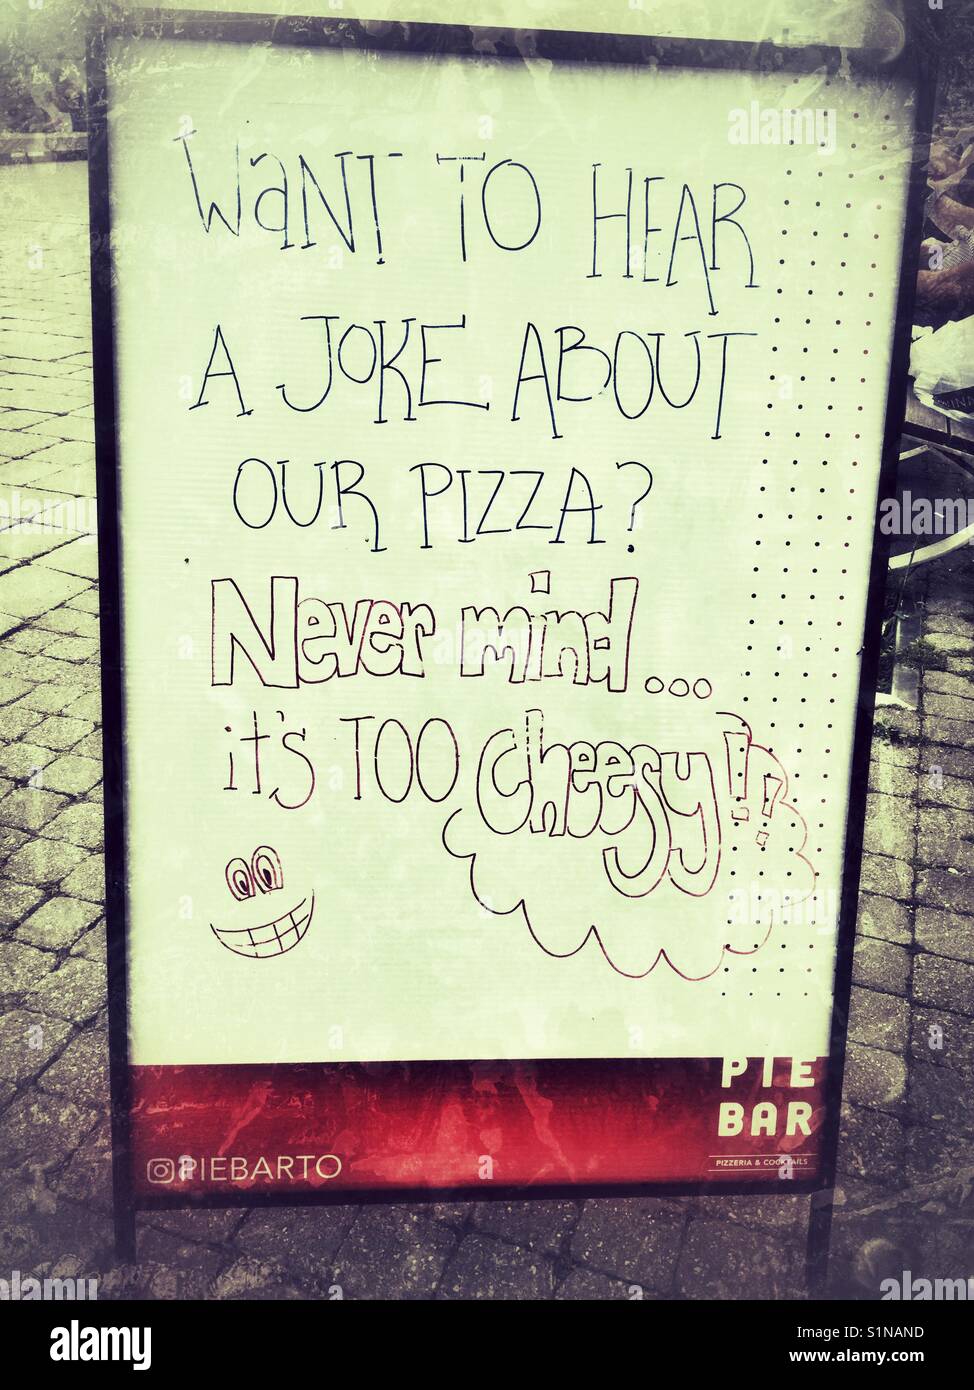 WaNT TO HEAR
A JOKE ABOUT
OUR PIZZA?
Never mind...
it's TOO cheesy!!
PIE
BAR
PIZZERIA & COCKTAILS
PIEBARTO
alamy
alamy
Image ID: S1NAND
www.alamy.com